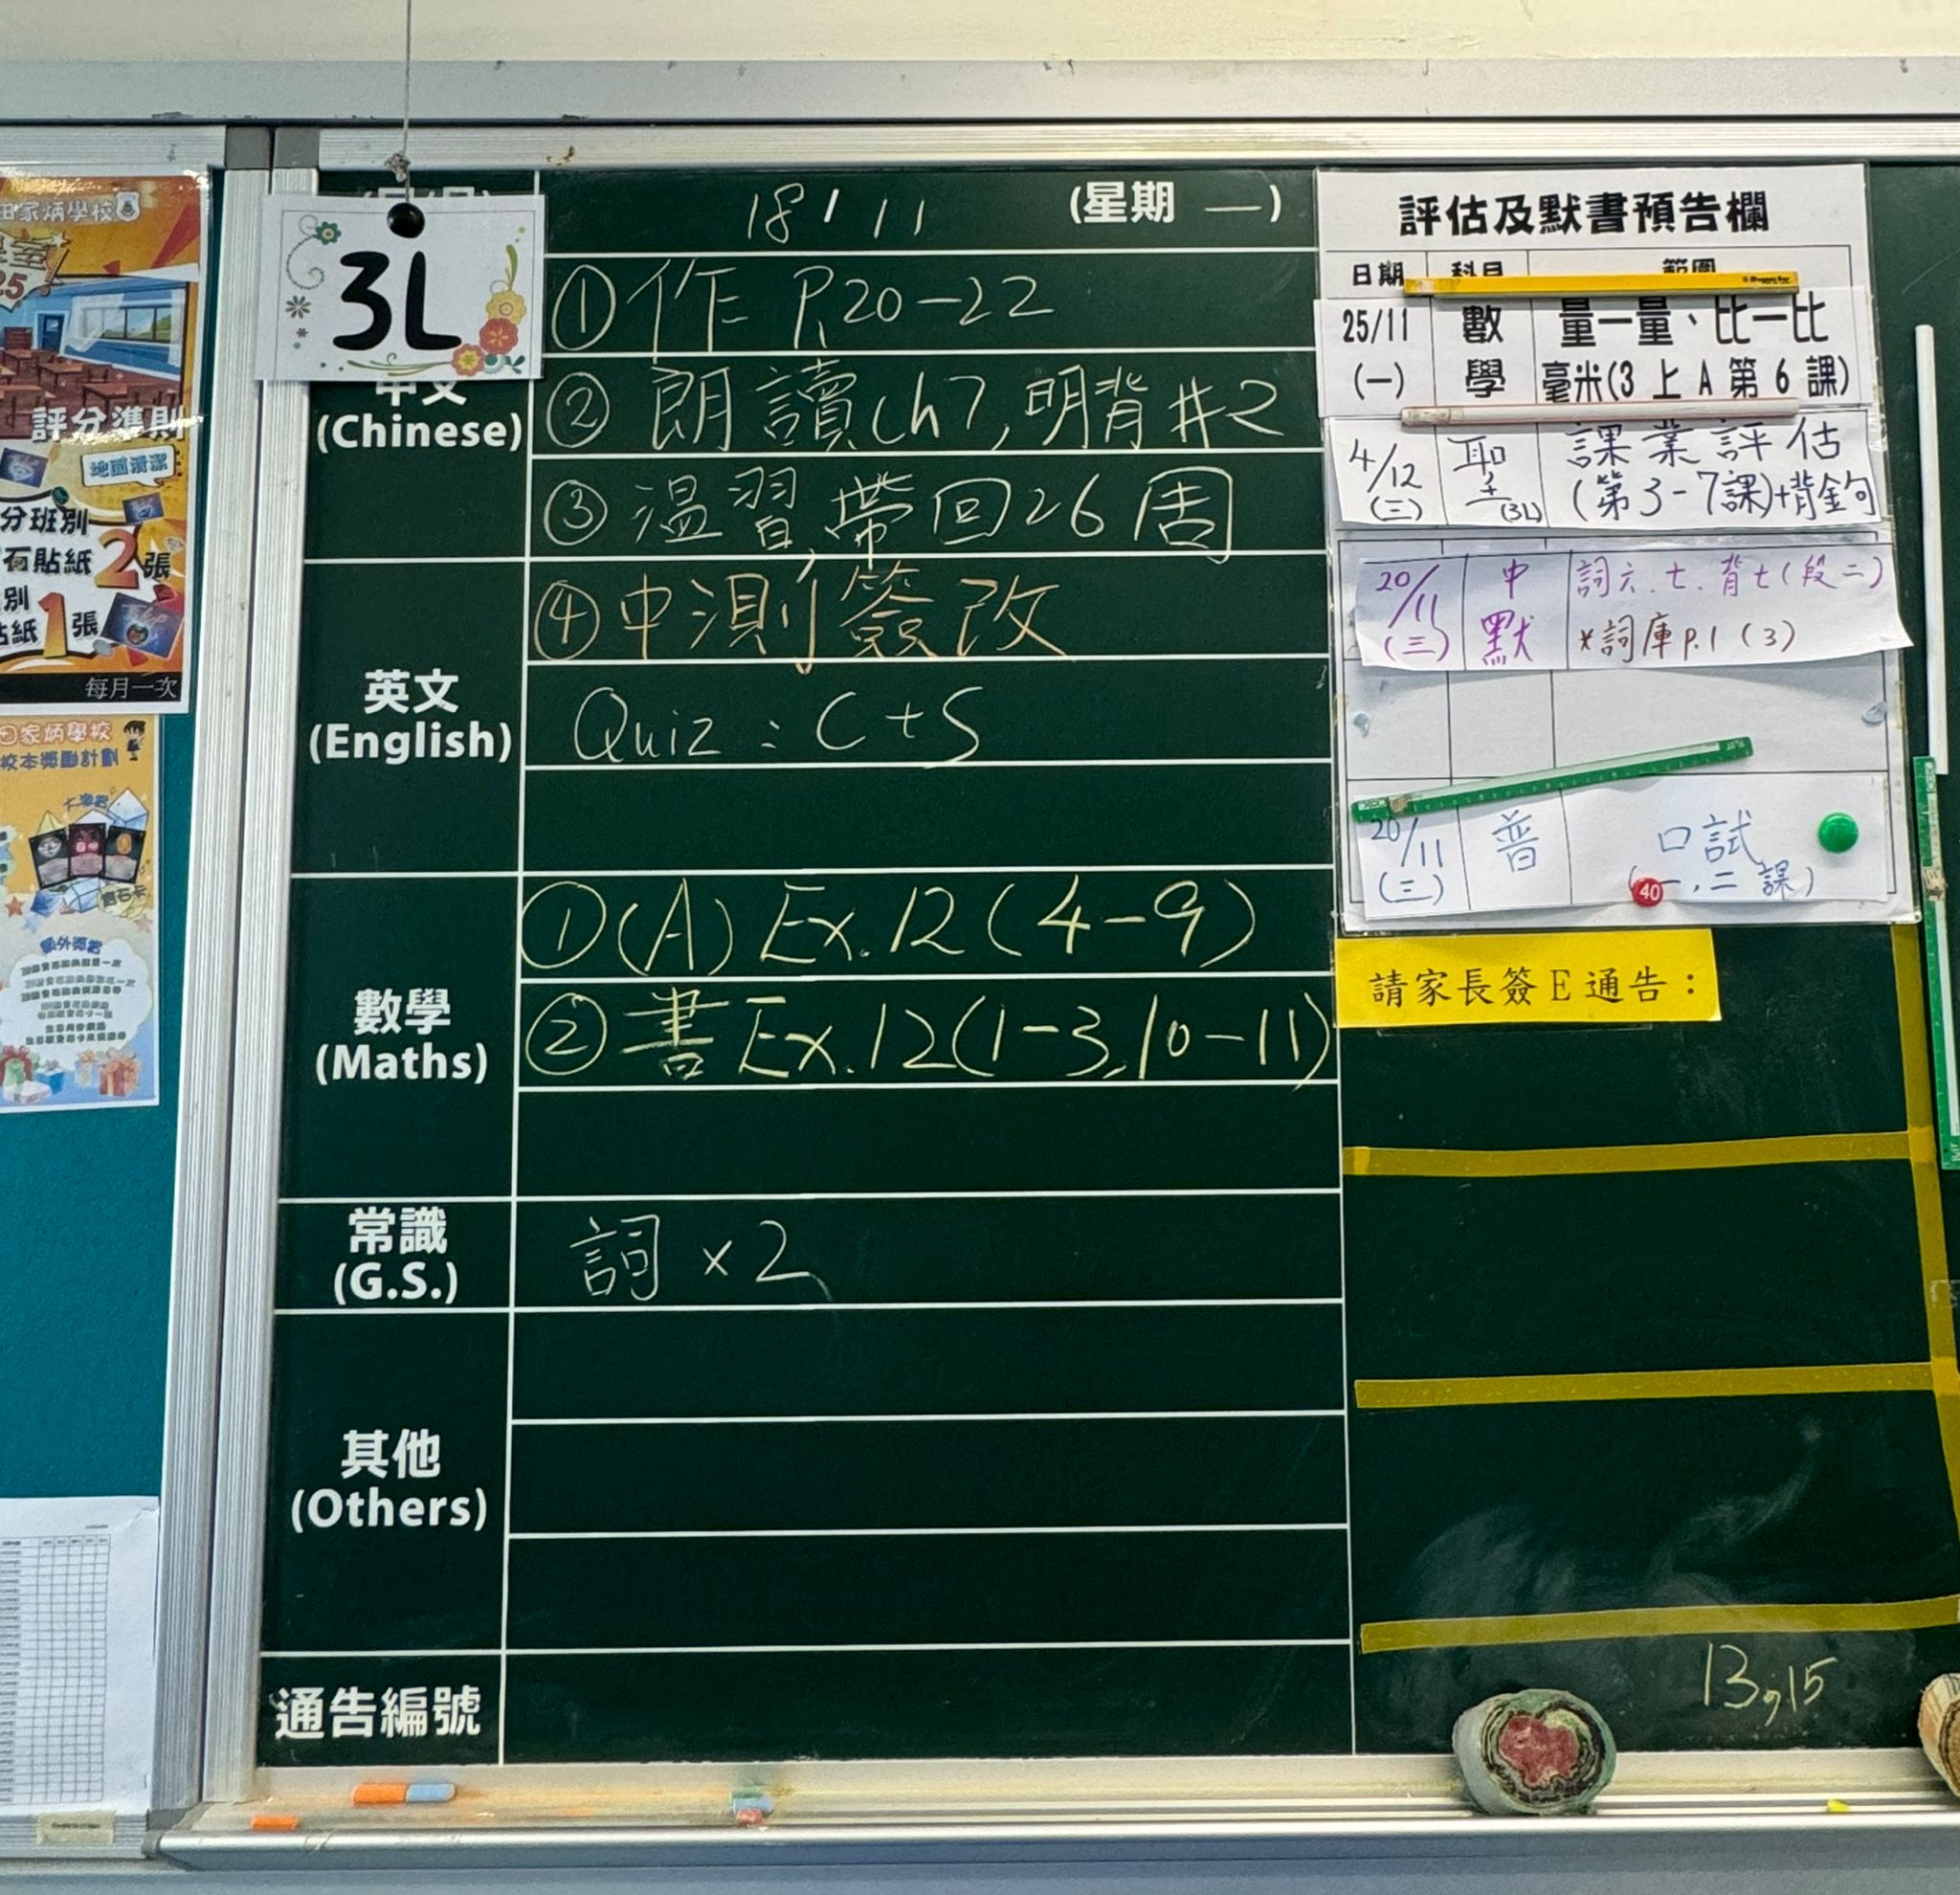 3L
18/11 (星期 一)
中文
(Chinese)
①作 P.20-22
②朗讀ch7,明背#2
③温習,帶回26周
④中測簽改
英文
(English)
Quiz : C+S
數學
(Maths)
①(A) Ex.12(4-9)
②書Ex.12(1-3,10-11)
常識
(G.S.)
詞×2
其他
(Others)
通告編號
評估及默書預告欄
日期 科目 範圍
25/11 數 量一量、比一比
(一) 學 毫米(3 上 A 第 6 課)
4/12 聖 課業評估
(三) (3L) (第3-7課)+背金句
20/11 中 詞六.七.背七(段二)
(三) 默 *詞庫P.1(3)
20/11 普 口試
(三) (一,二課)
40
請家長簽E通告:
13,15
田家炳學校
評分準則
地面清潔
分班別
石貼紙2張
別
貼紙1張
每月一次
田家炳學校
校本獎勵計劃
寶石卡
額外獎賞